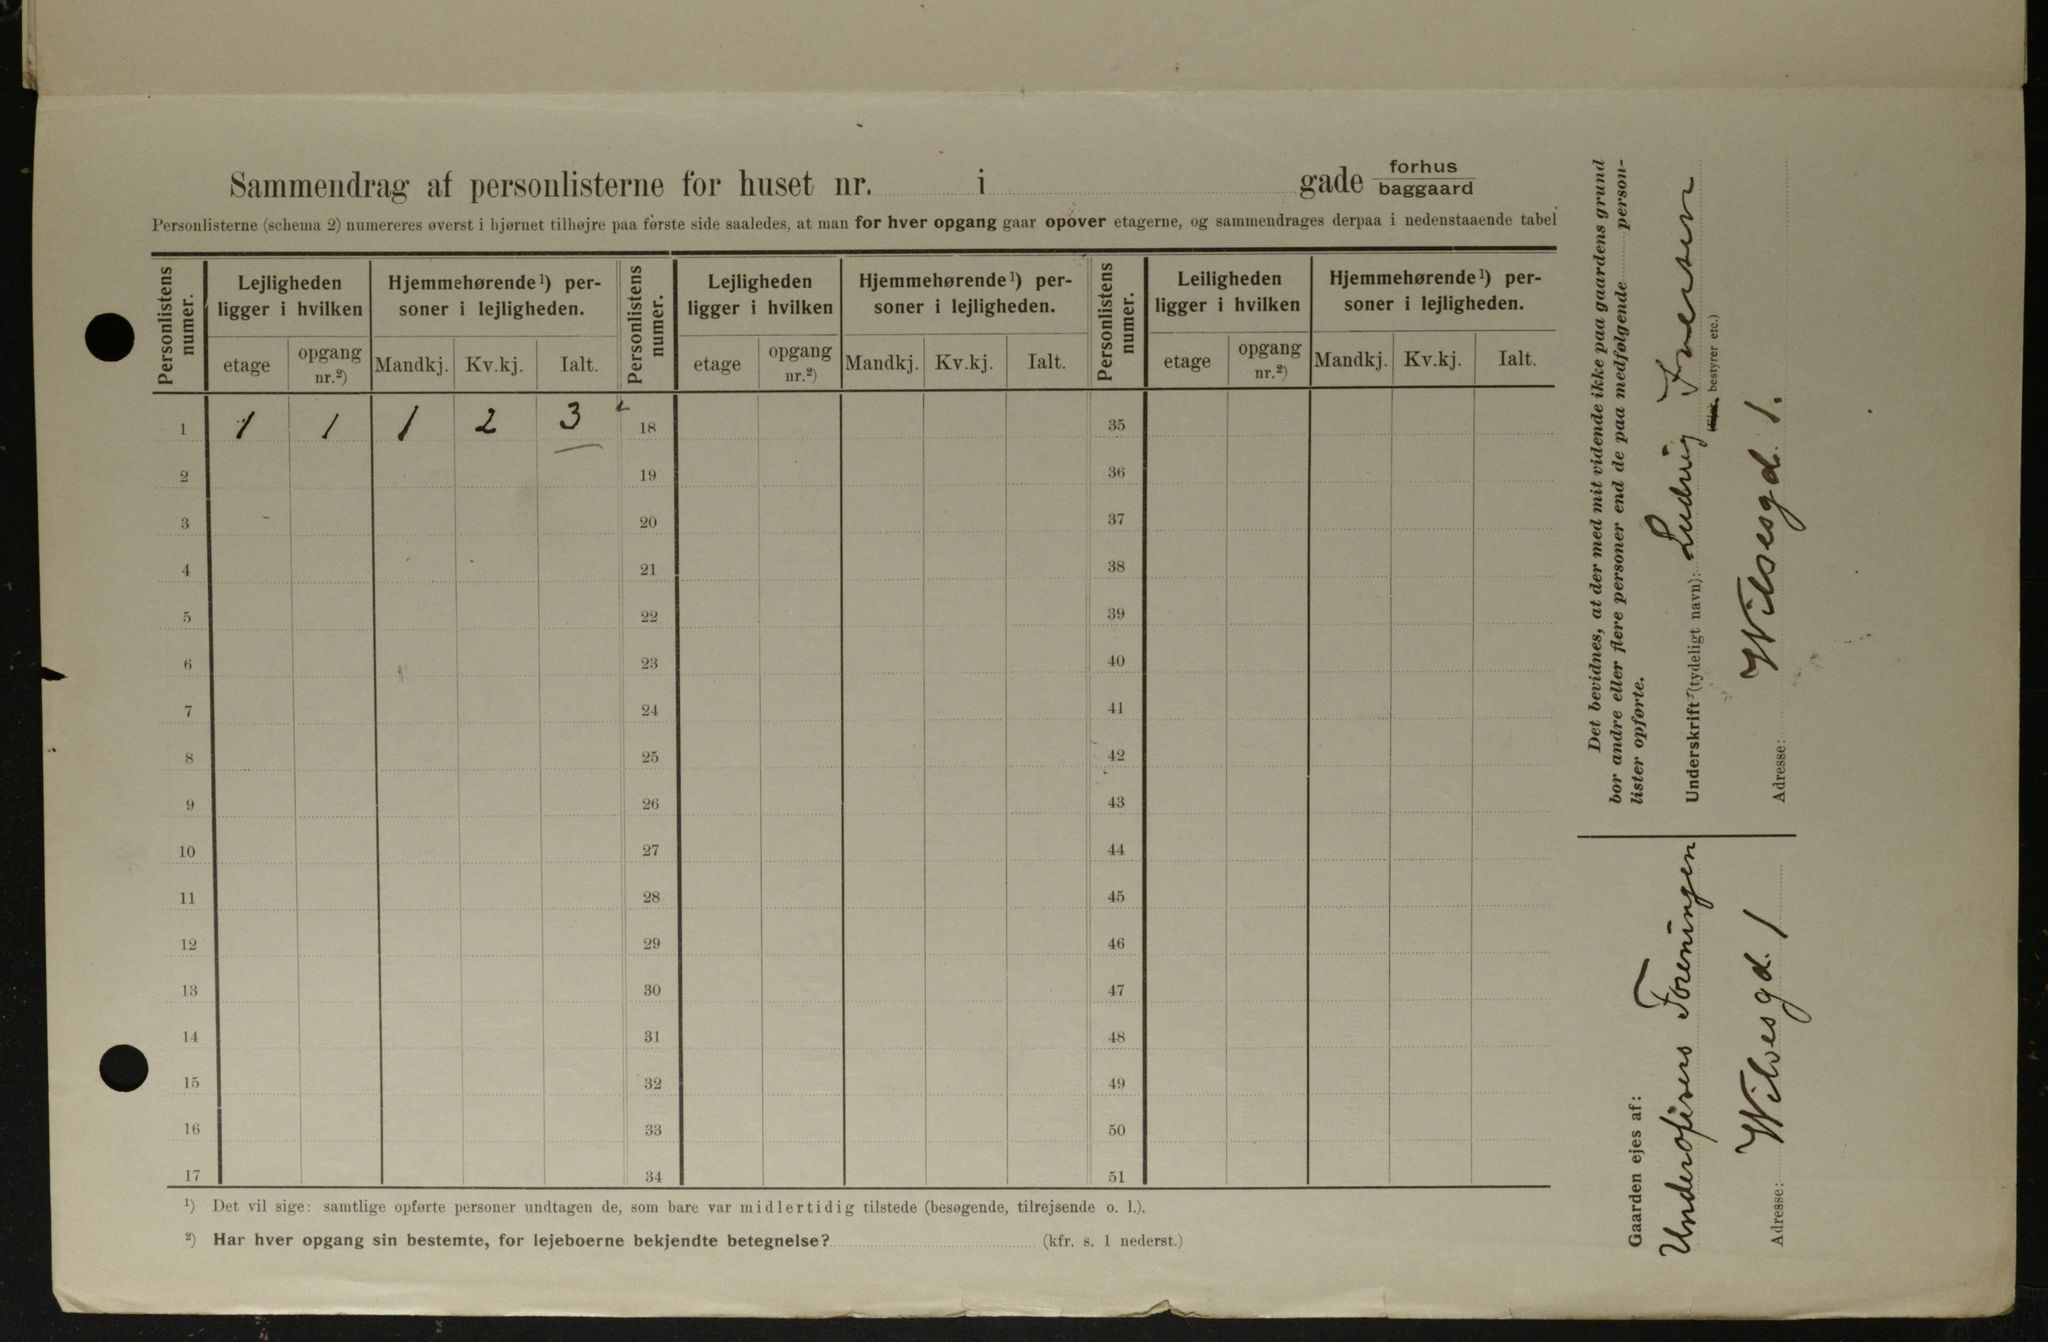 Sammendrag af personlisterne for huset nr. i gade forhus
baggaard
Personlisterne (schema 2) numereres øverst i hjørnet tilhøjre paa første side saaledes, at man for hver opgang gaar opover etagerne, og sammendrages derpaa i nedenstaaende tabel
Personlistens numer.
Lejligheden ligger i hvilken
etage
opgang nr.²)
Hjemmehørende¹) personer i lejligheden.
Mandkj.
Kv.kj.
Ialt.
Personlistens numer.
Lejligheden ligger i hvilken
etage
opgang nr.²)
Hjemmehørende¹) personer i lejligheden.
Mandkj.
Kv.kj.
Ialt.
Personlistens numer.
Leiligheden ligger i hvilken
etage
opgang nr.²)
Hjemmehørende¹) personer i lejligheden.
Mandkj.
Kv.kj.
Ialt.
1 1 1 1 2 3 18 35
2 19 36
3 20 37
4 21 38
5 22 39
6 23 40
7 24 41
8 25 42
9 26 43
10 27 44
11 28 45
12 29 46
13 30 47
14 31 48
15 32 49
16 33 50
17 34 51
¹) Det vil sige: samtlige opførte personer undtagen de, som bare var midlertidig tilstede (besøgende, tilrejsende o. l.).
²) Har hver opgang sin bestemte, for lejeboerne bekjendte betegnelse? (kfr. s. 1 nederst.)
Det bevidnes, at der med mit vidende ikke paa gaardens grund
bor andre eller flere personer end de paa medfølgende person-
lister opførte.
Underskrift (tydeligt navn): Ludvig Iversen
(Ejer, bestyrer etc.)
Adresse: Wilsesgd. 1.
Gaarden ejes af:
Underofisers Foreningen
Adresse: Wilsesgd. 1